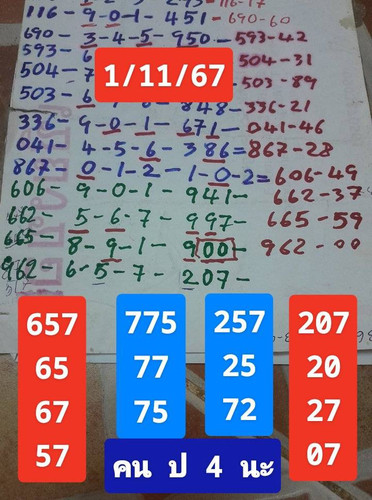 116-17
116-9-0-1-451-690-60
690-3-4-5-950-593-42
593-6 504-31
504-7 503-89
1/11/67
503-6 848-336-21
336-9-0-1-671-041-46
041-4-5-6-386=867-28
867-0-1-2-1-0-2=606-49
606-9-0-1-941- 662-37
662-5-6-7-997- 665-59
665-8-9-1-900- 962-00
962-6-5-7-207-
657 775 257 207
65 77 25 20
67 75 72 27
57 07
คน ป 4 นะ